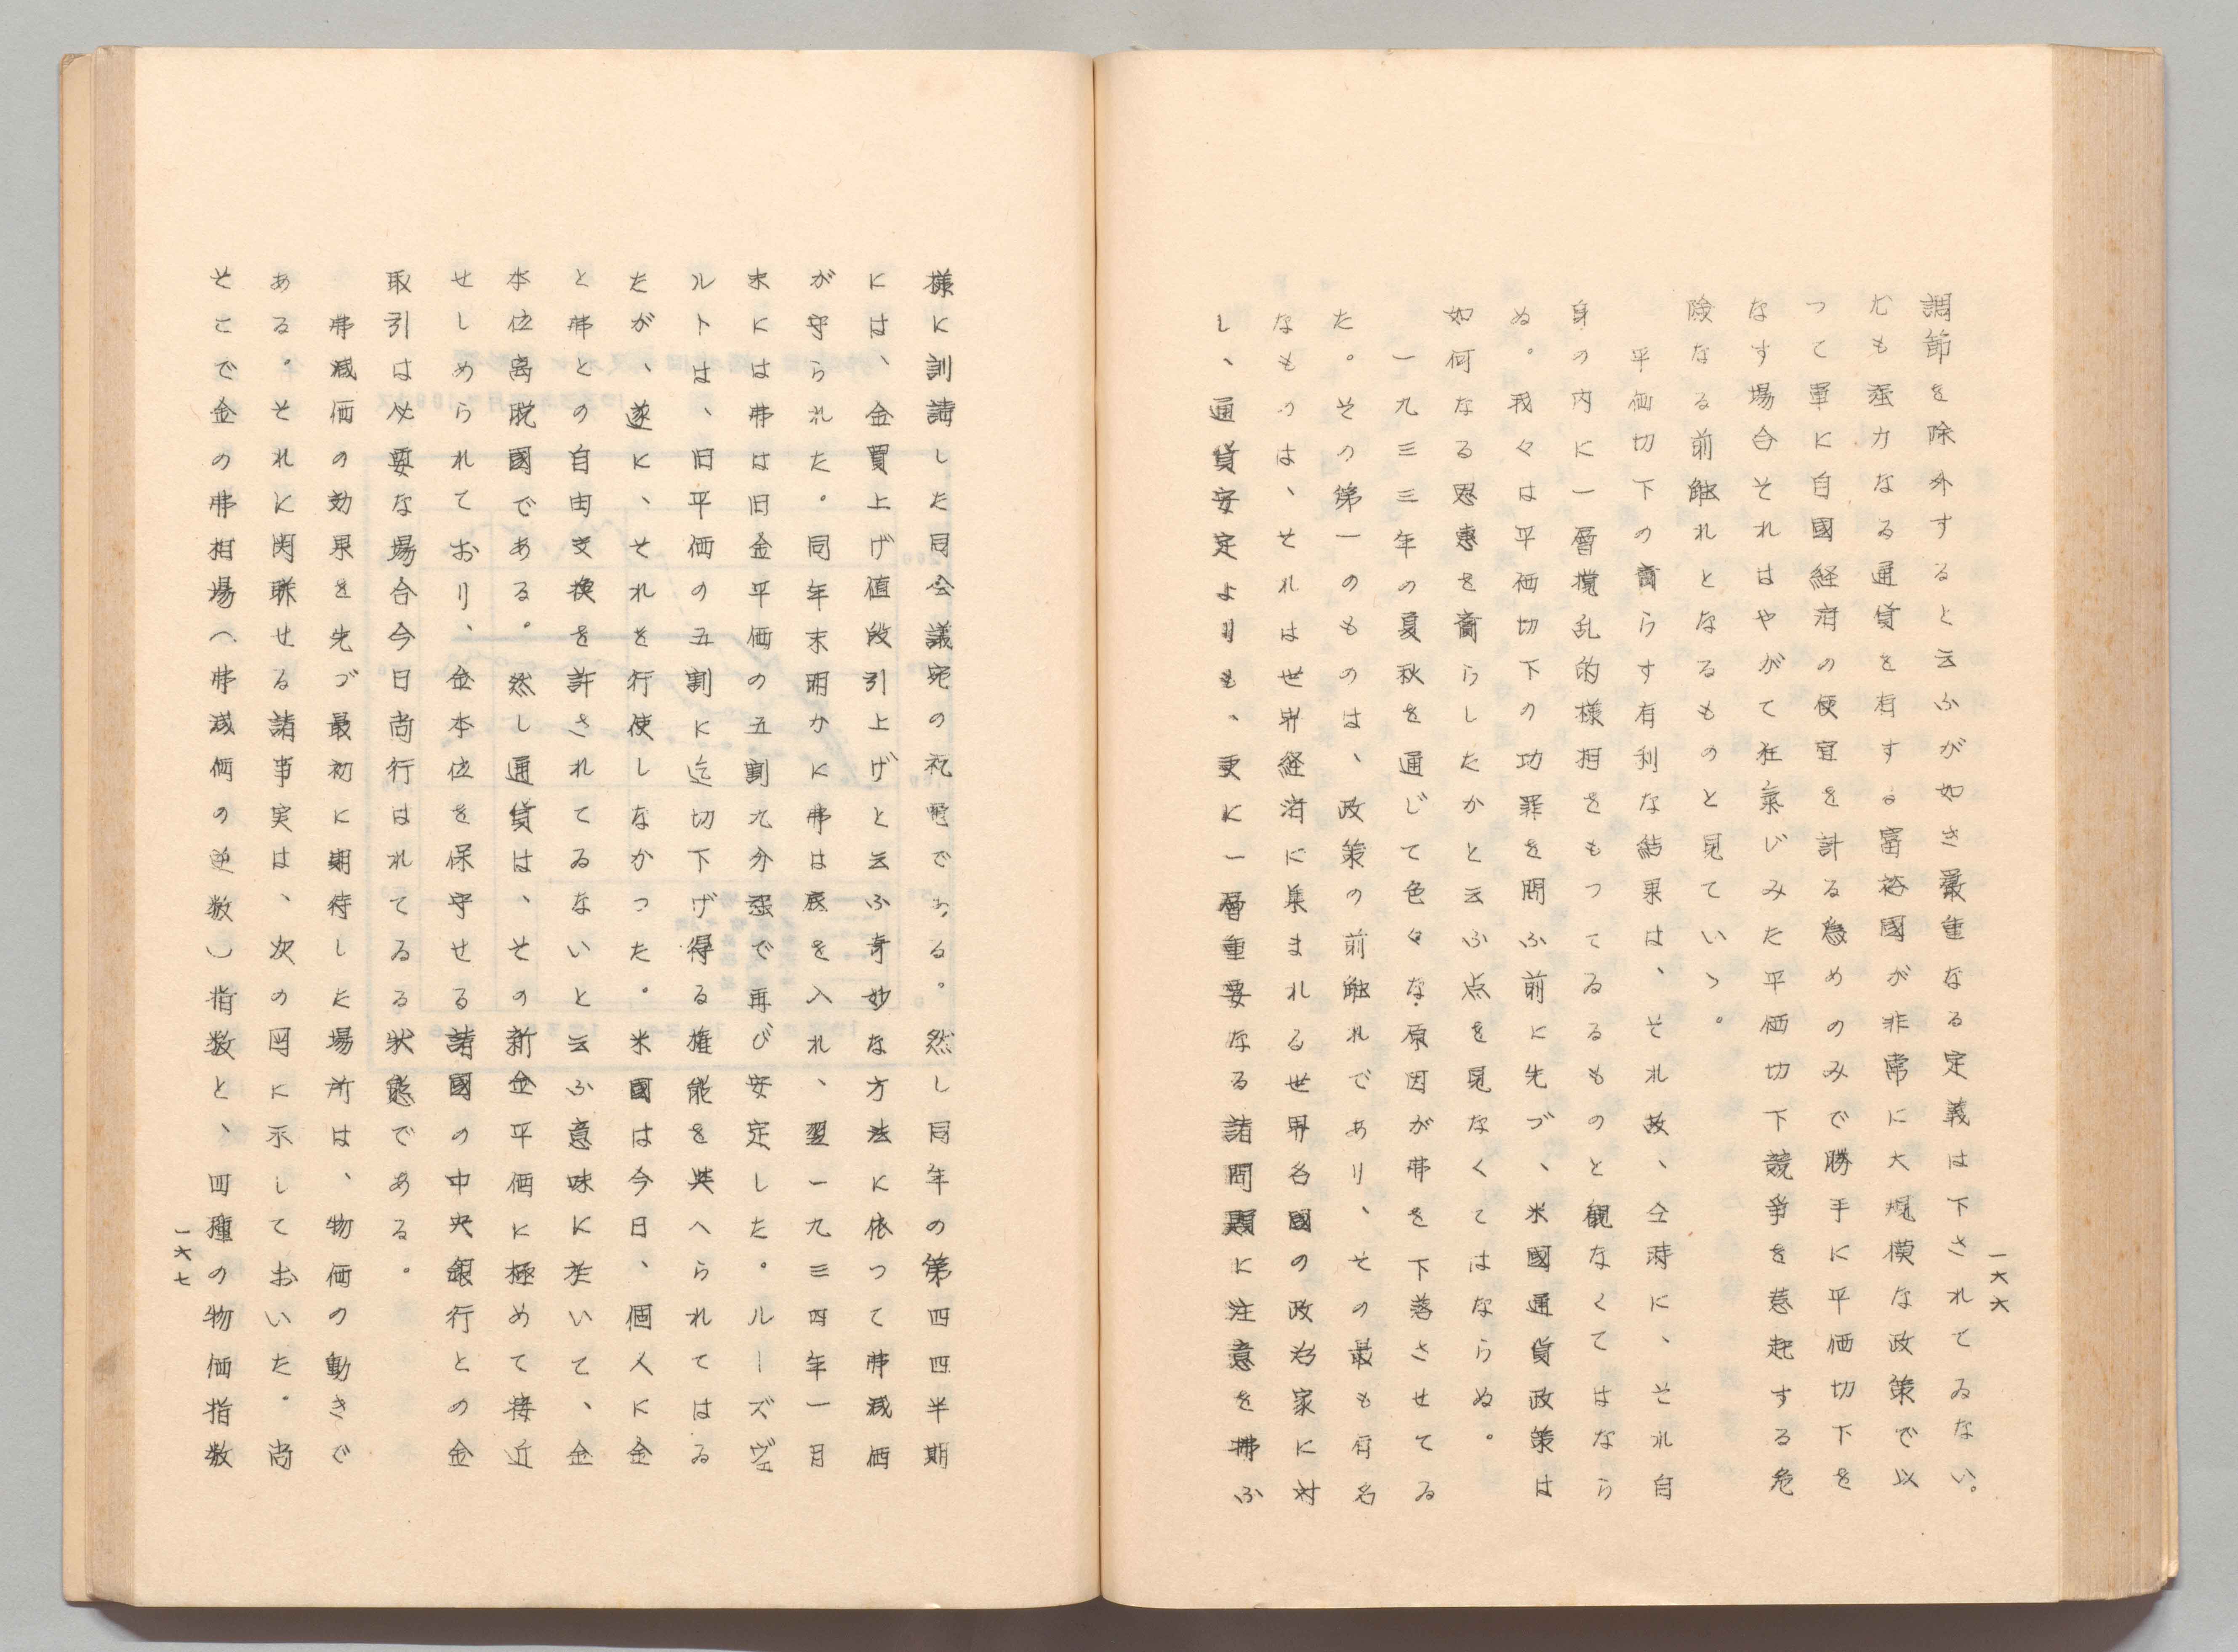 調節を除外すると云ふが如き嚴重なる定義は下されてゐない。
尤も强力なる通貨を有する富裕國が非常に大規模な政策で以
つて單に自國経済の便宜を計る為めのみで勝手に平価切下を
なす場合それはやがて狂氣じみた平価切下競爭を惹起する危
険なる前触れとなるものと見ていゝ。
平価切下の齎らす有利な結果は、それ故、仝時に、それ自
身の内に一層攪乱的様相をもつてゐるものと観なくてはなら
ぬ。我々は平価切下の功罪を問ふ前に先づ、米國通貨政策は
如何なる恩惠を齎らしたかと云ふ点を見なくてはならぬ。
一九三三年の夏秋を通じて色々な原因が弗を下落させてゐ
た。その第一のものは、政策の前触れであり、その最も有名
なものは、それは世界経済に集まれる世界各國の政治家に対
し、通貨安定よりも、更に一層重要なる諸問題に注意を拂ふ
一六六
様に訓請した同会議宛の祝電である。然し同年の第四四半期
には、金買上げ値段引上げと云ふ奇妙な方法に依つて弗減価
が守られた。同年末明かに弗は底を入れ、翌一九三四年一月
末には弗は旧金平価の五割九分强で再び安定した。ルーズヴェ
ルトは、旧平価の五割に迄切下げ得る権能を與へられてはゐ
たが、遂に、それを行使しなかつた。米國は今日、個人に金
と弗との自由交換を許されてゐないと云ふ意味に於いて、金
本位离脱國である。然し通貨は、その新金平価に極めて接近
せしめられており、金本位を保守せる諸國の中央銀行との金
取引は必要な場合今日尚行はれてゐる状態である。
弗減価の効果を先づ最初に期待した場所は、物価の動きで
ある。それに関聯せる諸事実は、次の図に示しておいた。尚
そこで金の弗相場（弗減価の逆数）指数と、四種の物価指数
一六七